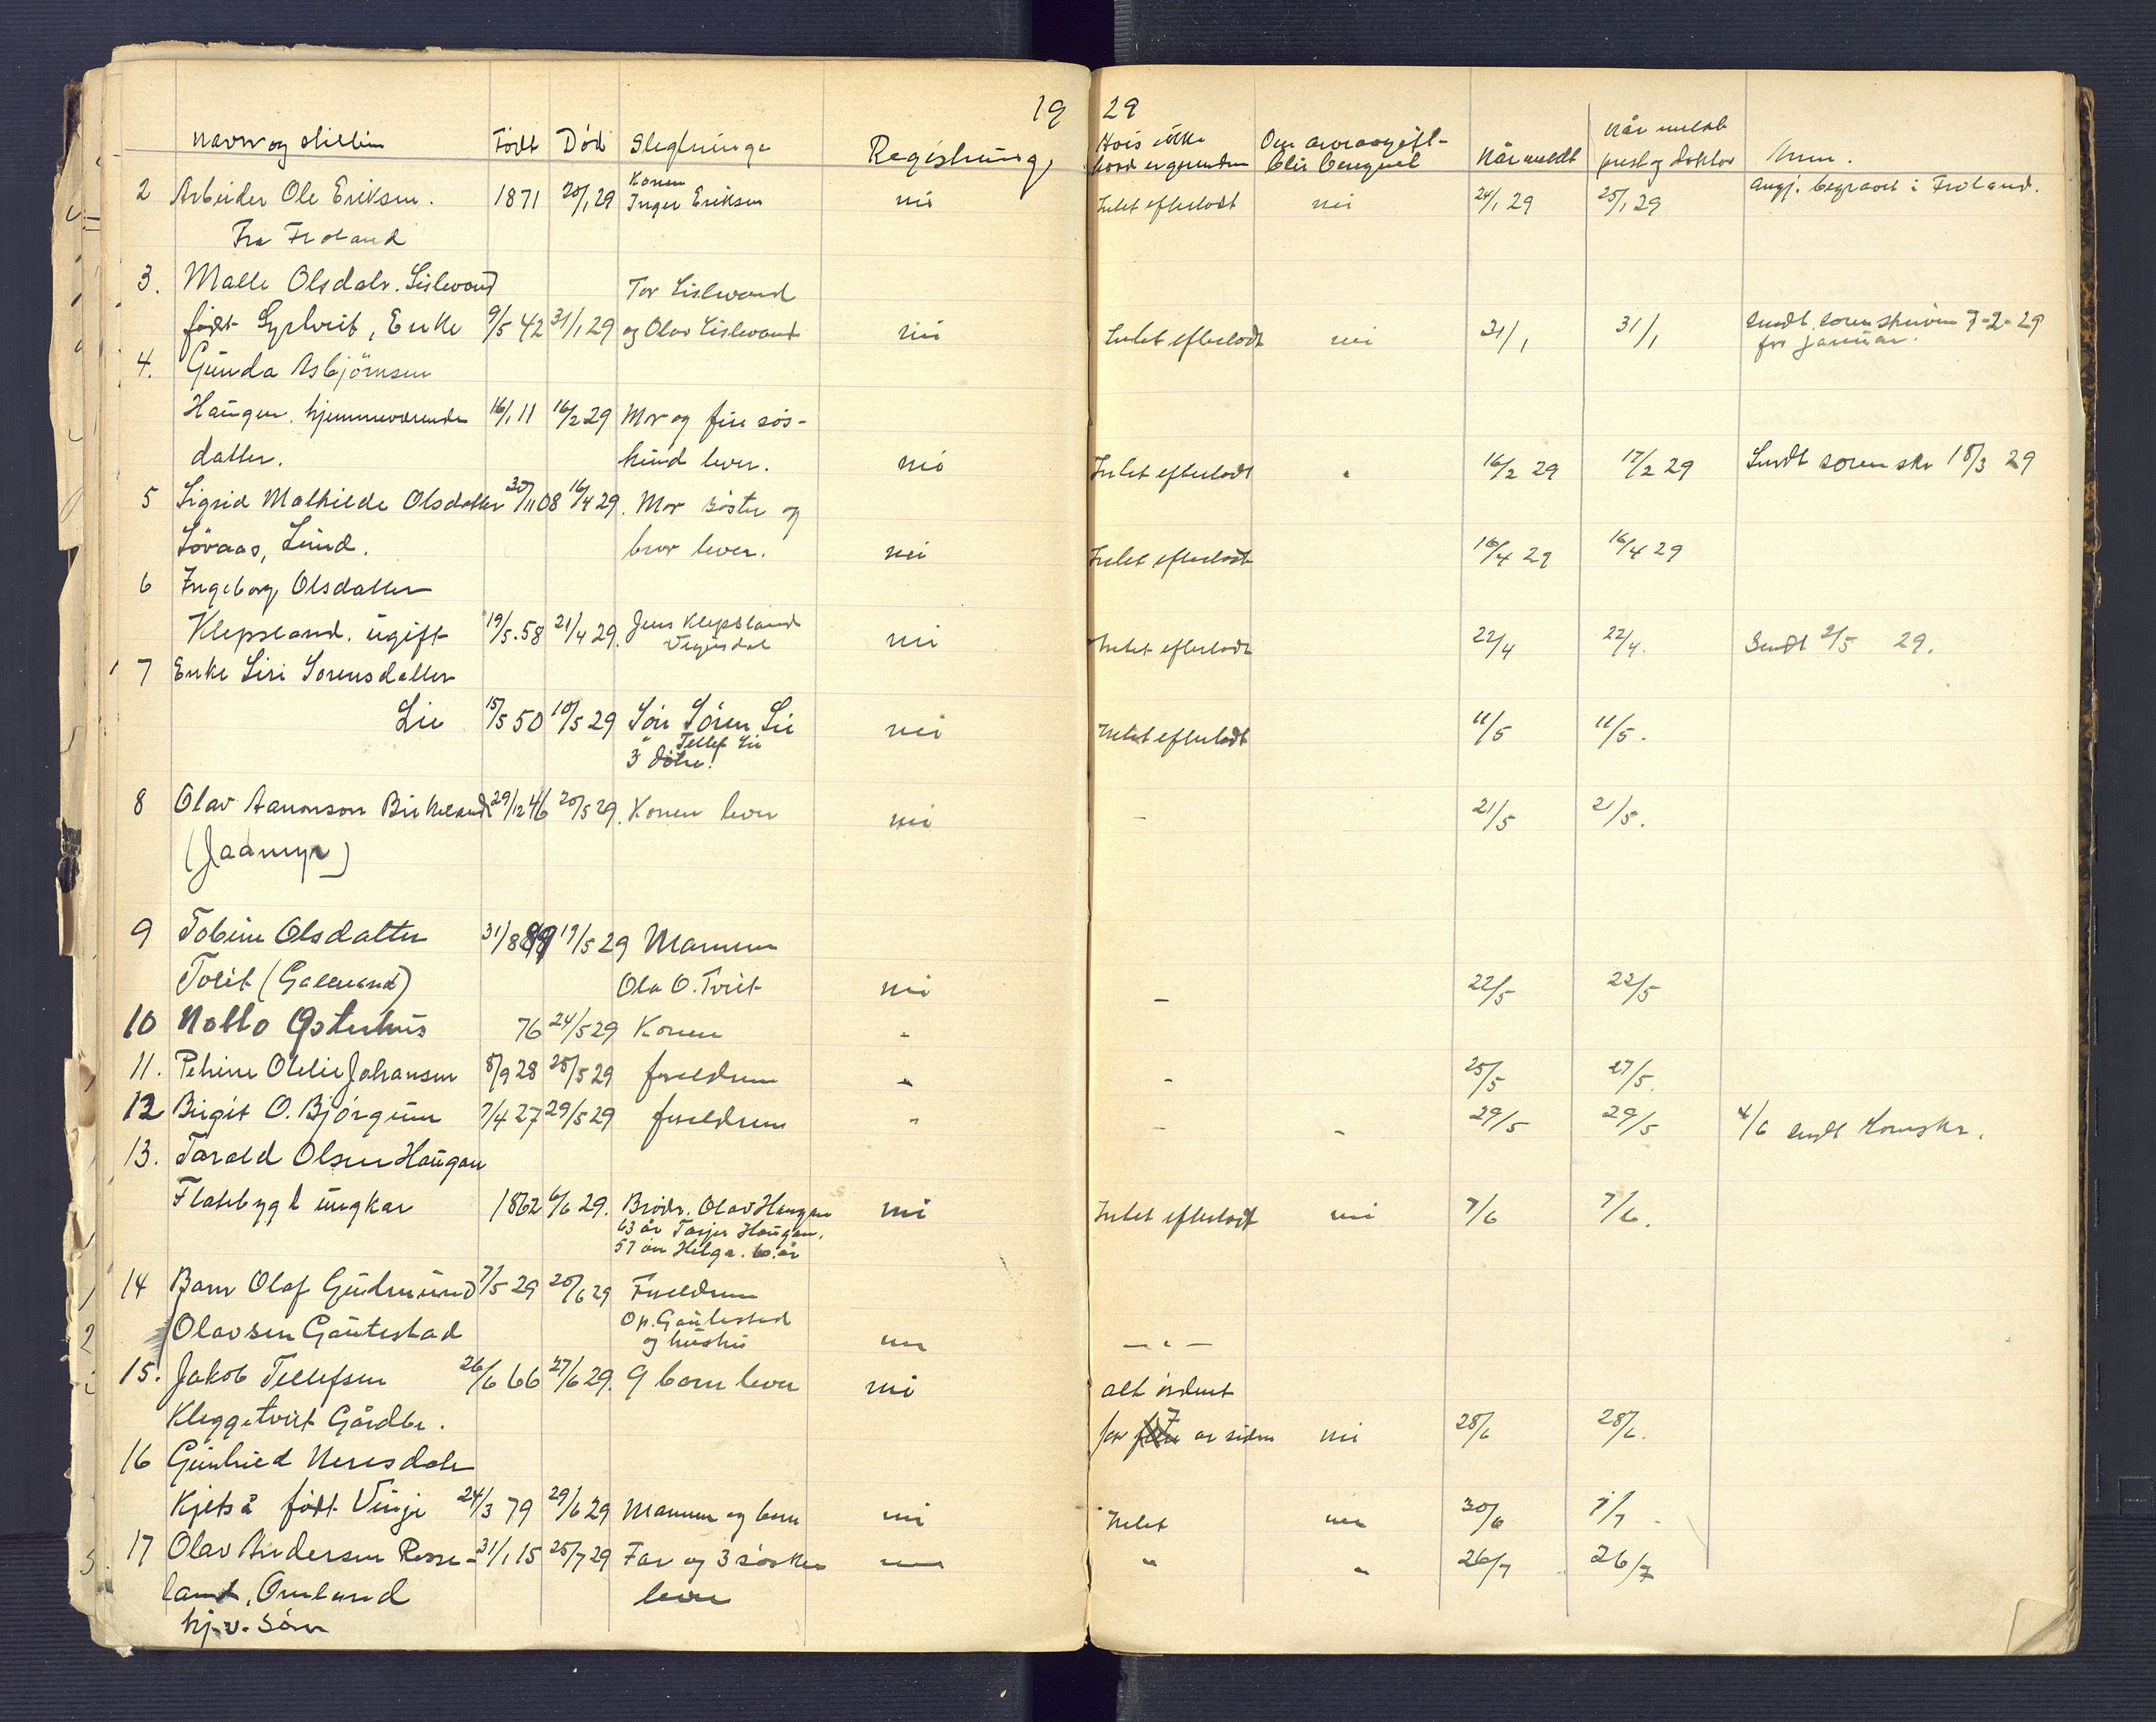 19 29
Navn og stilling Født Død Slegtninge Registrering Hvis ikke Om arveavgift Når meldt Når meldt prest og doktor Anm.
2 Arbeider Ole Eriksen. 1871 20/1 29 Konen Inger Eriksen nei Intet efterlodt nei 24/1 29 25/1 29 Angj. begravet i Froland.
Fra Froland
3. Malle Olsdatr. Lislevand Tor Lislevand
født Syrtveit, Enke 9/5 42 31/1 29 og Olav Lislevand nei Intet efterlodt nei 31/1 31/1 Sendt sorenskriven 7-2-29
for januar.
4. Gunda Asbjörnsen
Haugen. hjemmeværende 16/1 11 16/2 29 Mor og fire søs-
datter. kind lever. nei Intet efterlodt " 16/2 29 17/2 29 Sendt sorenskr 18/3 29
5 Sigrid Mathilde Olsdatter 30/11 08 16/4 29. Mor söster og
Lövaas, Lund. bror lever. nei Intet efterlodt 16/4 29 16/4 29
6 Ingeborg Olsdatter
Klepsland. ugift 19/5. 58 21/4 29. Jens Klepsland nei Intet efterlodt 22/4 22/4. Sendt 2/5 29.
Vegusdal
7 Enke Siri Sorensdatter
Lie 15/5 50 10/5 29 Sön Sören Lie nei Intet efterlodt 11/5 11/5.
" Tellef Lie
3 døtre!
8 Olav Aanonson Birkeland 29/12 46 20/5 29. Konen lever nei - 21/5 21/5.
(Jaamyr)
9 Tobine Olsdatter 31/8 89 19/5 29 Mannen
Tveit (Galteland) Ola O. Tveit nei - 22/5 22/5
10 Notto Østerhus 76 24/5 29 Konen "
11. Petrine Otelie Johansen 8/9 28 25/5 29 foreldrene " - 25/5 27/5.
12 Birgit O. Bjórgum 7/4 27 29/5 29 foreldrene " - - 29/5 29/5 4/6 sendt sorenskr.
13. Tarald Olsen Haugan
Flatebygd ungkar 1862 6/6 29. Brödr. Olav Haugan nei Intet efterlodt nei 7/6 7/6.
63 år Tarjei Haugan,
57 år Helga. 60 år
14 Barn Olaf Gudmund 7/5 29 20/6 29 Foreldrene
Olavsen Gautestad Op. Gautestad
og hustru nei — " —
15. Jakob Tellefsen 26/6 66 27/6 29. 9 barn lever nei alt ordnet
Kleggetveit Gårdbr. for 7 år siden nei 28/6 28/6.
16 Gunhild Neresdatr
Kjetså født Vinje 24/3 79 29/6 29 Mannen og barn nei Intet nei 30/6 1/7 -
17 Olav Andersen Rosse- 21/1 15 25/7 29 Far og 3 søsken nei " " 26/7 26/7
land, Omland lever
hj.v. Sönn